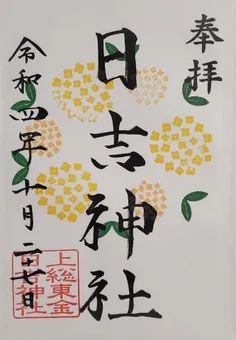 奉拝
日吉神社
令和四年十月二十七日
上総東金
日吉神社